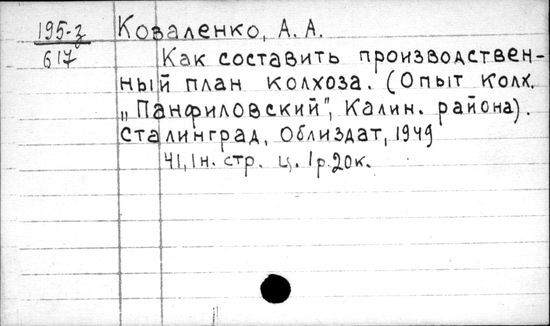 195-з Коваленко, А. А.
617 Как составить производствен-
ный план колхоза. (Опыт колх.
„Панфиловский", Калин. района).
Сталинград, Облиздат, 1949
41, 1 н. стр. ц. 1 р. 20 к.